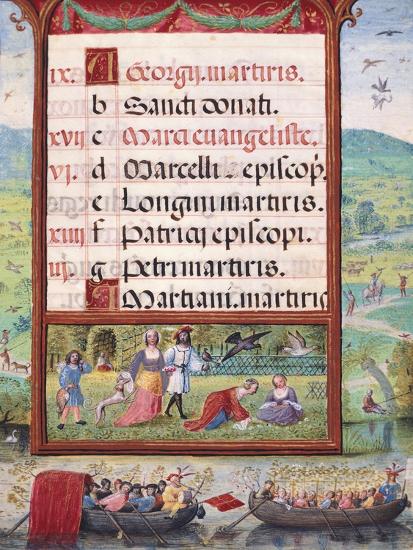 ix. A Georgij. martiris.
b Sancti donati.
xvij c Marci euangeliste.
vi. d Marcelli episcop̄.
e Longinj martiris.
xiiij f Patricij episcopi.
iij. g Petri martiris.
A Martiani. martiris